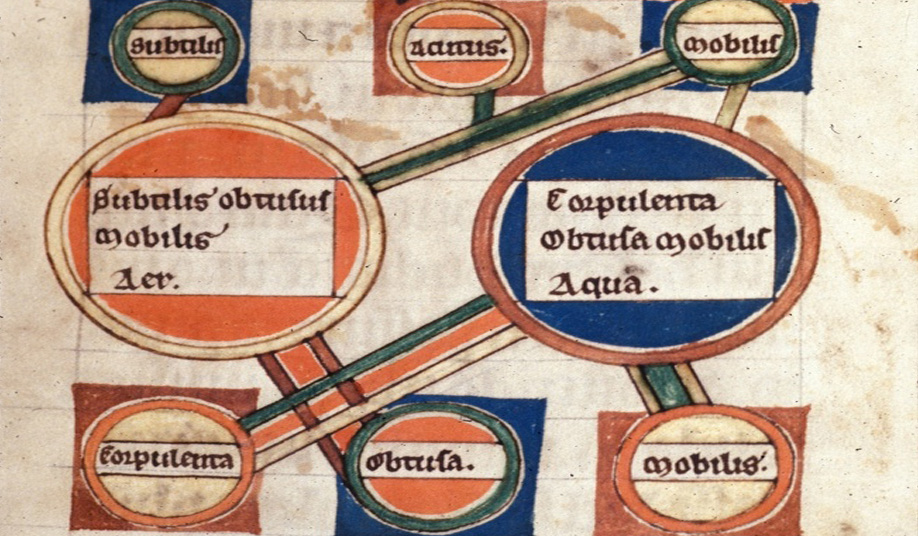 Subtilis
Acutus.
Mobilis
Subtilis obtusus
Mobilis
Aer.
Corpulenta
Obtusa mobilis
Aqua.
Corpulenta
Obtusa.
Mobilis.